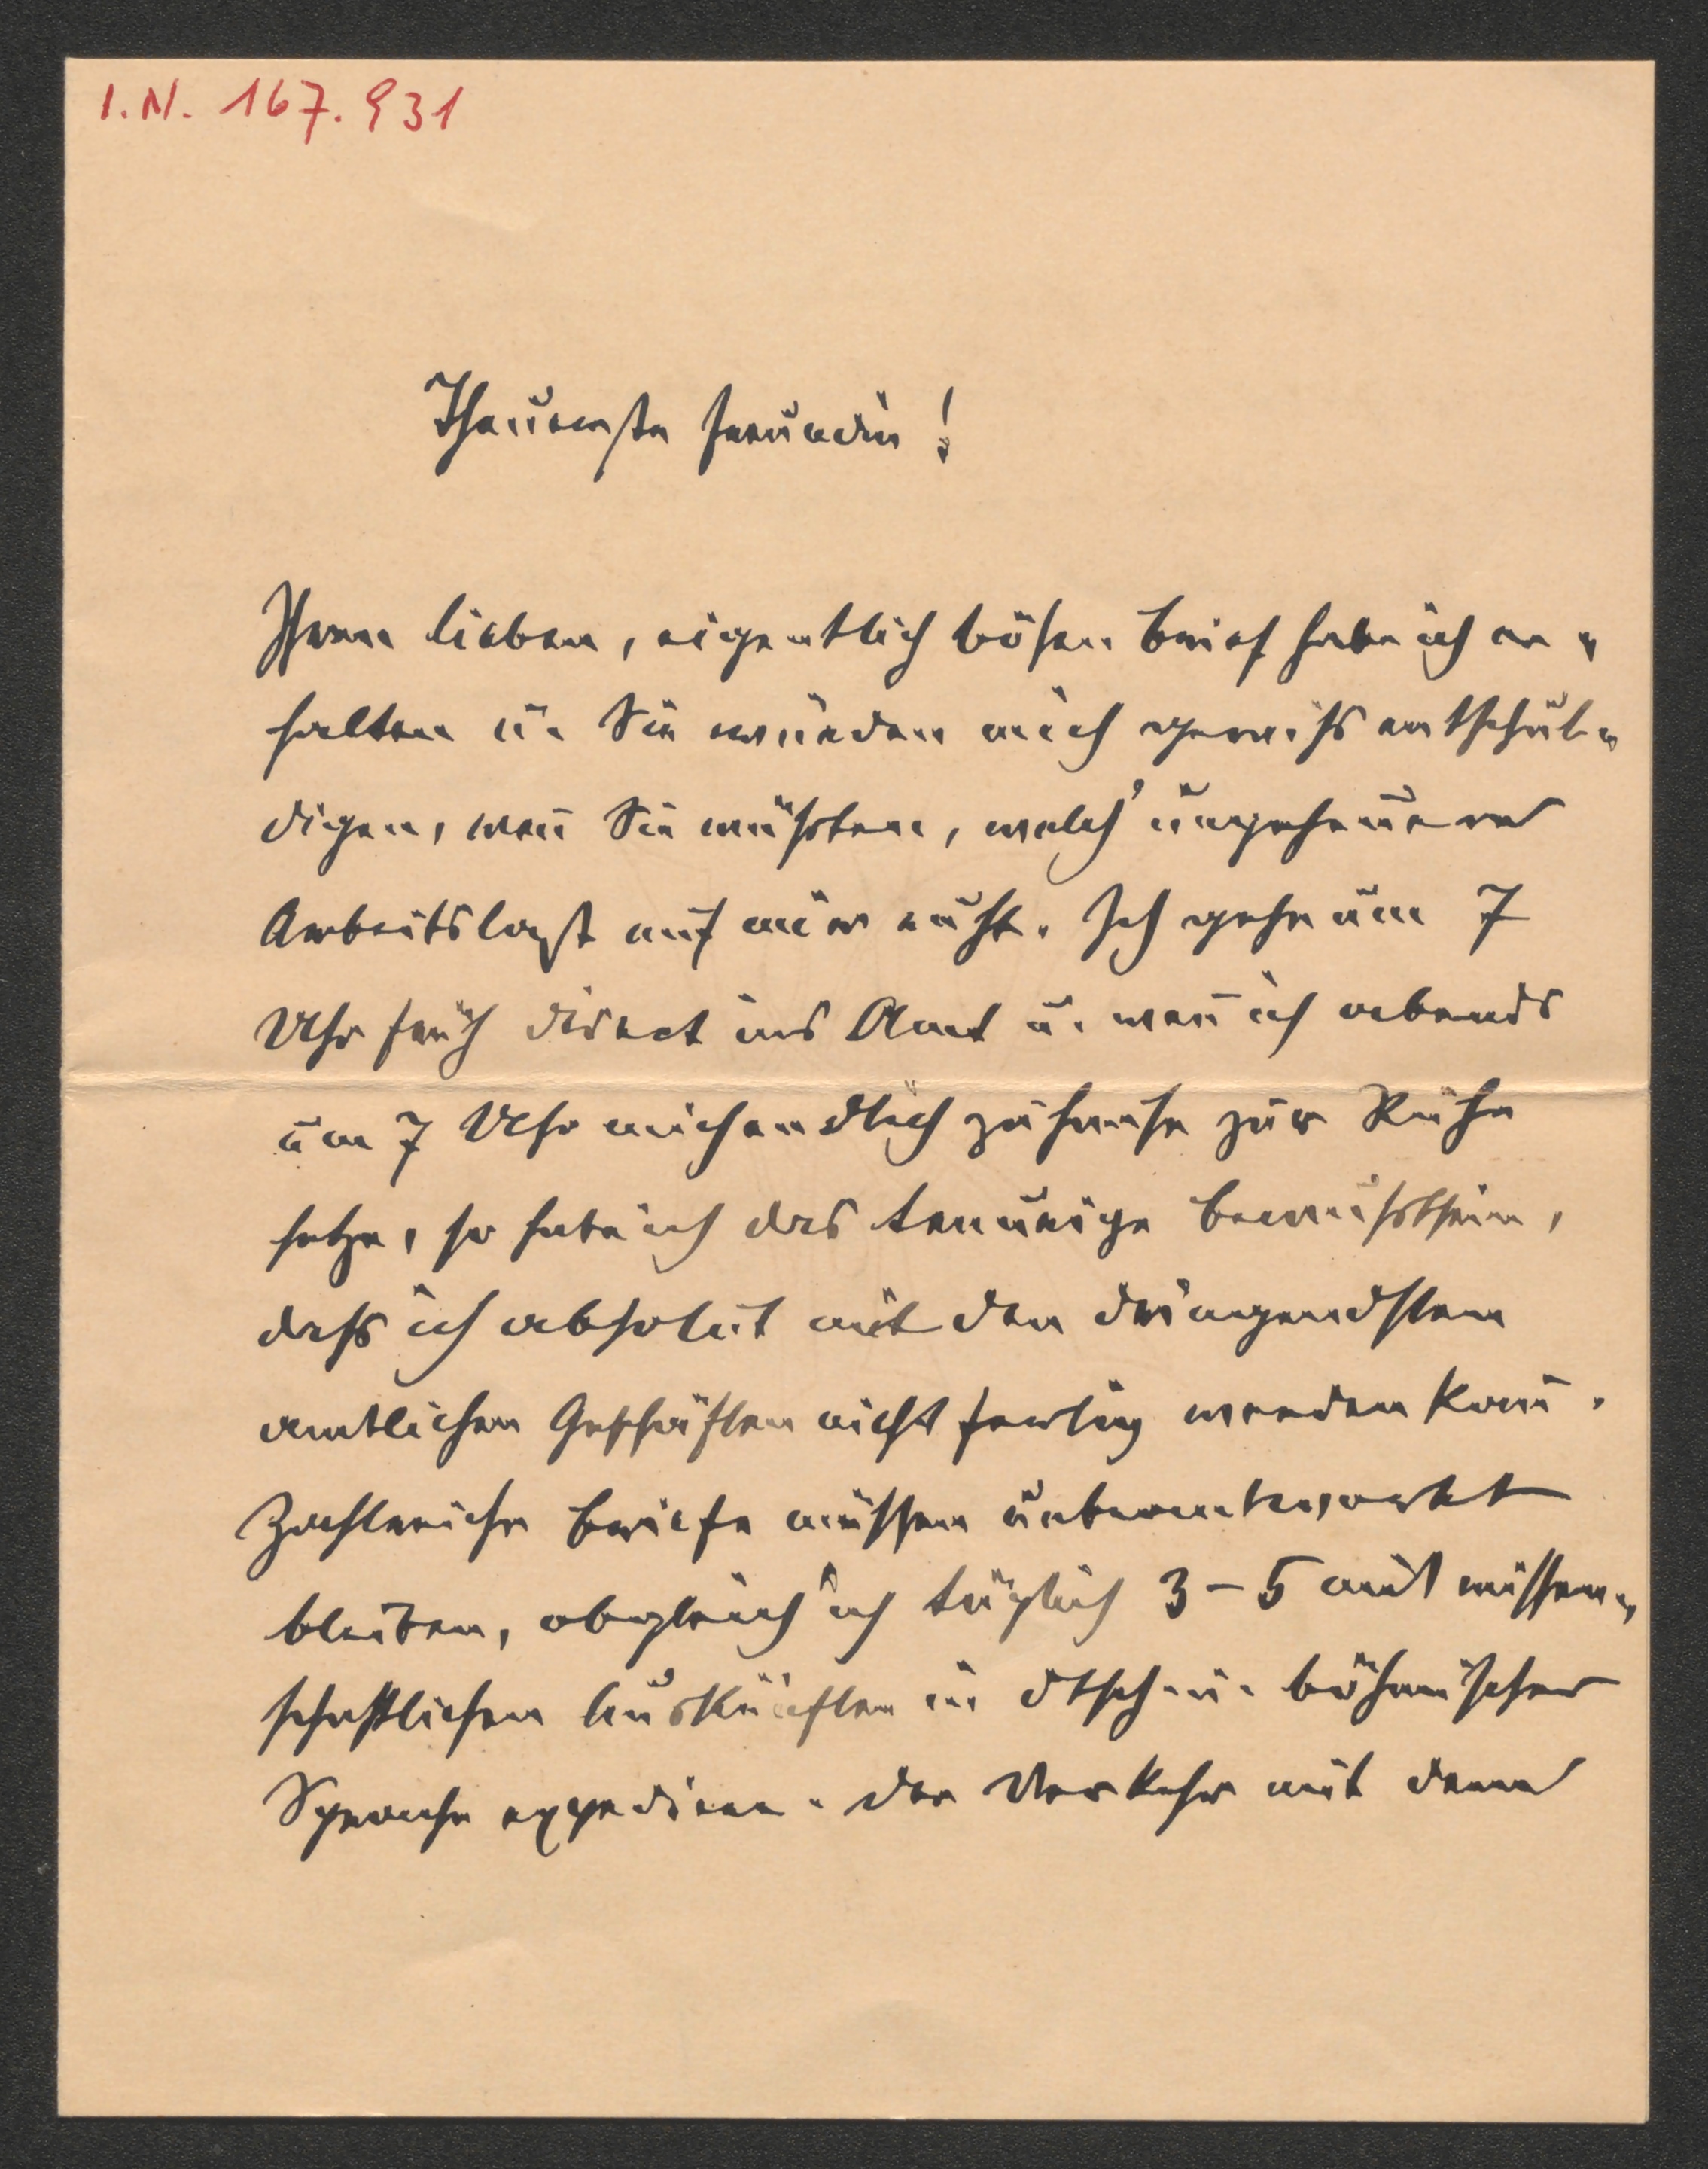 I.N. 167.931
Theuerste Freundin!
Ihren lieben, eigentlich bösen Brief habe ich er-
halten u. Sie würden mich gewiss entschul-
digen, weñ Sie wüssten, welch' ungeheuere
Arbeitslast auf mir ruht. Ich gehe um 7
Uhr früh direct ins Amt u. weñ ich abends
um 7 Uhr mich endlich zuhause zur Ruhe
setze, so habe ich das traurige Bewusstsein,
dass ich absolut mit den dringendsten
amtlichen Geschäften nicht fertig werden kañ.
Zahlreiche Briefe müssen unbeantwortet
bleiben, obgleich ich täglich 3-5 mit wissen-
schaftlichen Auskünften in dtsch. u. böhmischer
Sprache expediere. Der Verkehr mit dem